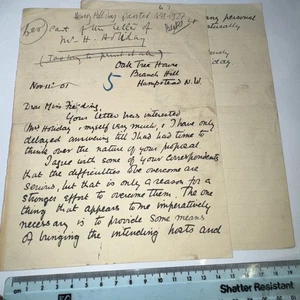 Henry Holiday painter 1839-1927
part of the letter of
Mr H. Holiday
Oak Tree House
Branch Hill
Hampstead N.W.
5
Nov 11 - 01
Dear Mrs Fielding,
Your letter has interested
Mr Holiday & myself very much, & I have only
delayed answering till I had had time to
think over the nature of your proposal.
I agree with some of your correspondents
that the difficulties to be overcome are
serious, but that is only a reason for a
stronger effort to overcome them. The one
thing that appears to me imperatively
necessary is to provide some means
of bringing the intending hosts and
personal
Shatter Resistant